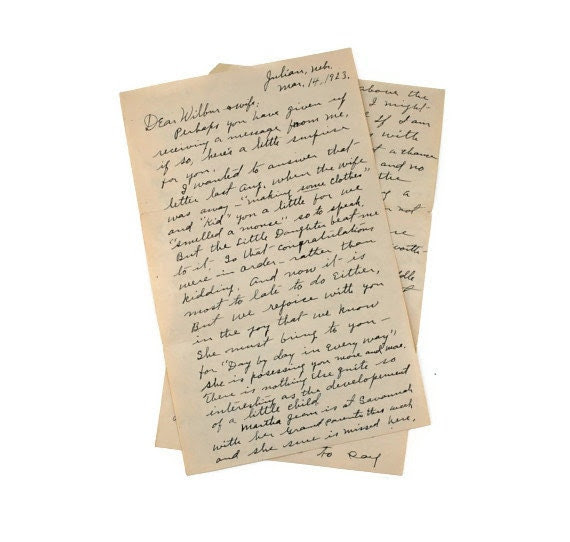 Julian, Neb.
Mar. 14, 1923.
Dear Wilbur & wife:
Perhaps you have given up
receiving a message from me,
if so, here's a little surprise
for you.
I wanted to answer that
letter last Aug. when the wife
was away - "making some clothes"
and "Kid" you a little for we
"smelled a mouse" so to speak.
But the Little Daughter beat me
to it. So that congratulations
were in order - rather than
kidding. And now it is
most to late to do Either,
But we rejoice with you
in the joy that we know
She must bring to you -
for "Day by day in Every way",
she is posessing you more and more.
There is nothing else quite so
interesting as the development
of a little child
Martha Jean is at Savannah
with her Grand Parents this week
and she sure is missed here,
to say
above the
I might
If I am
with
t a chance
and no
the
a
not